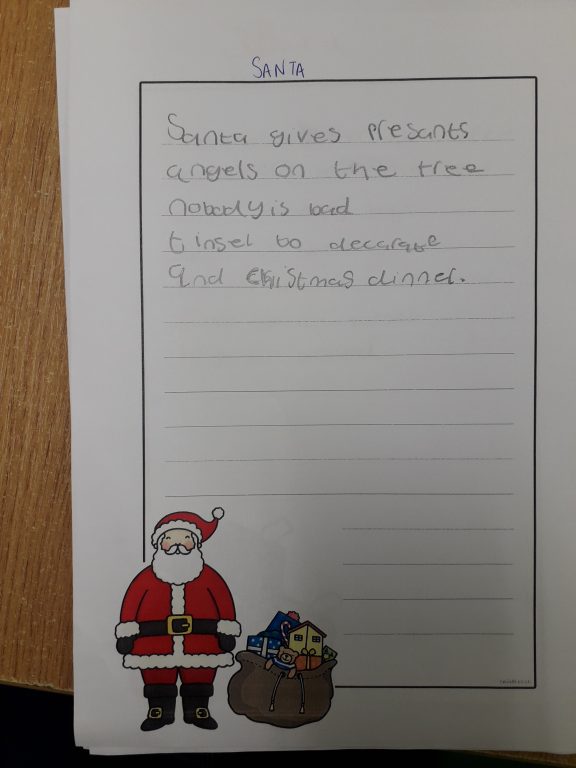 SANTA
Santa gives presants
angels on the tree
nobody is bad
tinsel to decarate
And Christmas dinner.